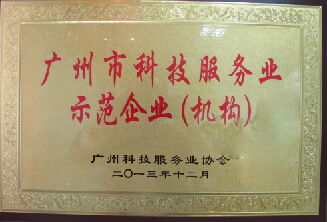 广州市科技服务业
示范企业(机构)
广州科技服务业协会
二〇一三年十二月